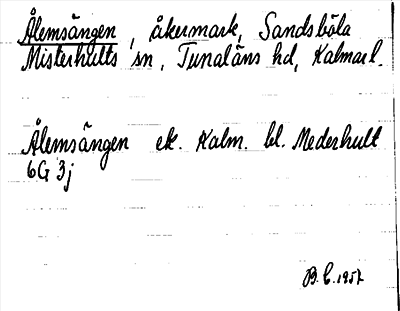 Ålemsängen, åkermark, Sandsböla
Misterhults sn, Tunaläns hd, Kalmar l.
Ålemsängen ek. Kalm. bl. Mederhult
6G 3j
B.C. 1957